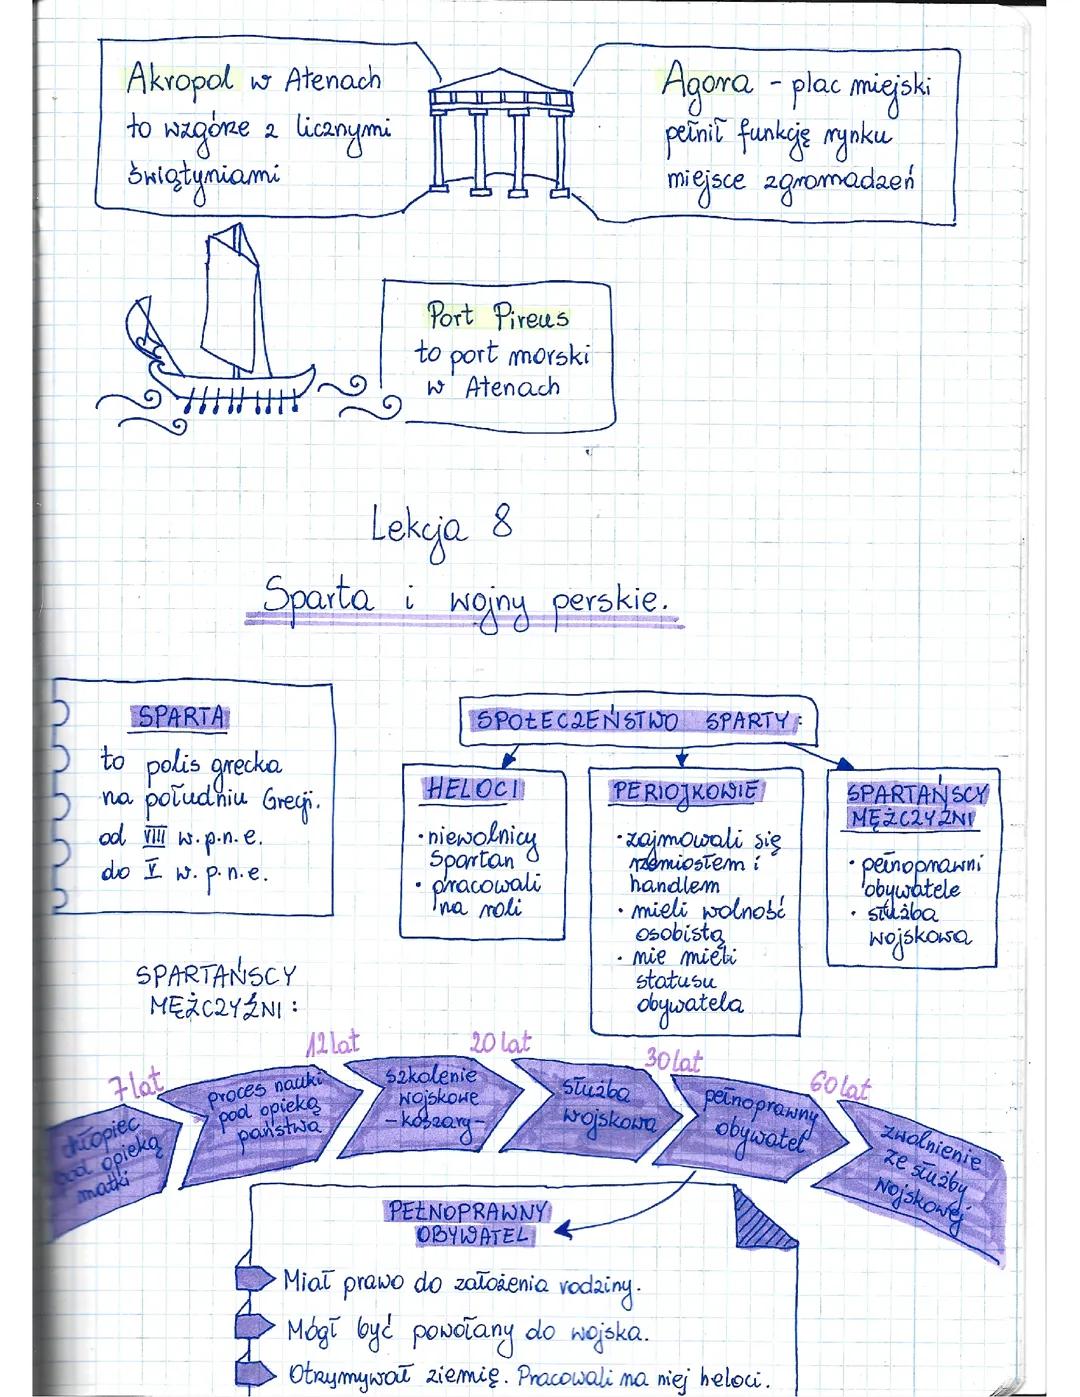 Akropol w Atenach
to wzgórze z licznymi
świątyniami
Agora - plac miejski
pełnił funkcję rynku
miejsce zgromadzeń
Port Pireus
to port morski
w Atenach
Lekcja 8
Sparta i wojny perskie.
SPARTA
to polis grecka
na południu Grecji.
od VIII w.p.n.e.
do V w.p.n.e.
SPOŁECZEŃSTWO SPARTY:
HELOCI
• niewolnicy
Spartan
• pracowali
na roli
PERIOJKOWIE
• zajmowali się
rzemiosłem i
handlem
• mieli wolność
osobistą
• nie mieli
statusu
obywatela
SPARTAŃSCY
MĘŻCZYŹNI
• pełnoprawni
obywatele
• służba
wojskowa
SPARTAŃSCY
MĘŻCZYŹNI:
7 lat
12 lat
20 lat
30 lat
60 lat
chłopiec
pod opieką
matki
proces nauki
pod opieką
państwa
szkolenie
wojskowe
- koszary -
służba
wojskowa
pełnoprawny
obywatel
zwolnienie
ze służby
wojskowej
PEŁNOPRAWNY
OBYWATEL
Miał prawo do założenia rodziny.
Mógł być powołany do wojska.
Otrzymywał ziemię. Pracowali na niej heloci.